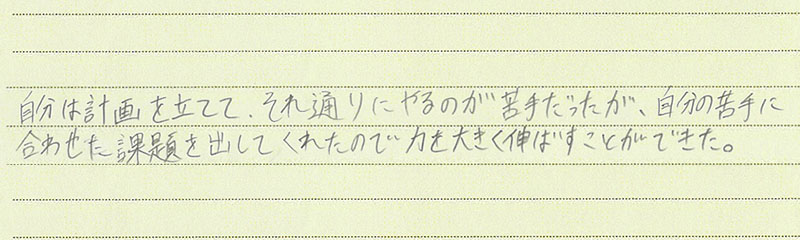 自分は計画を立てて、それ通りにやるのが苦手だったが、自分の苦手に
合わせた課題を出してくれたので力を大きく伸ばすことができた。